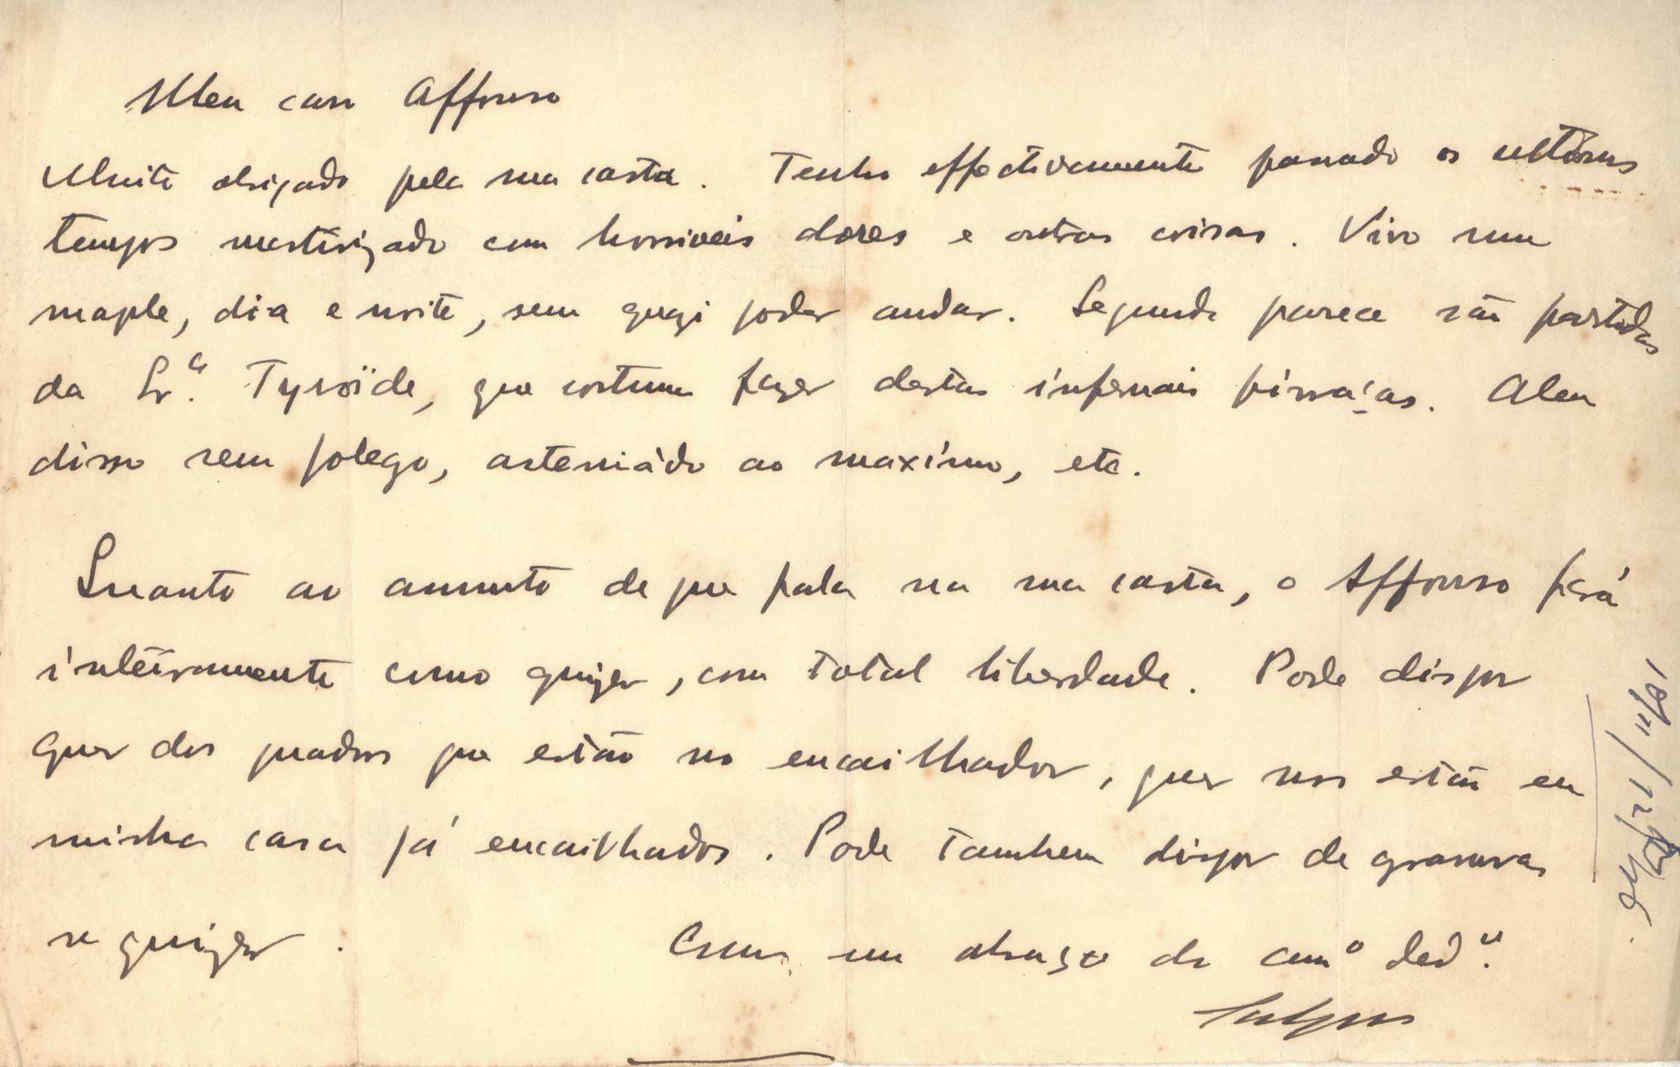 Meu caro Affonso
Muito obrigado pela sua carta. Tenho effectivamente passado os ultimos
tempos martirizado com horriveis dores e outras coisas. Vivo num
maple, dia e noite, sem quazi poder andar. Segundo parece são partidas
da Sr.ª Tyroïde, que costuma fazer destas infernais pirraças. Alem
disso sem folego, asteniádo ao maximo, etc.
Quanto ao assunto de que fala na sua carta, o Affonso fará
inteiramente como quizer, com total liberdade. Pode dispor
quer dos quadros que estão no encaixilhador, quer nos estão em
minha casa já encaixilhados. Pode tambem dispor de gravuras
se quizer. Com um abraço do am.º ded.º